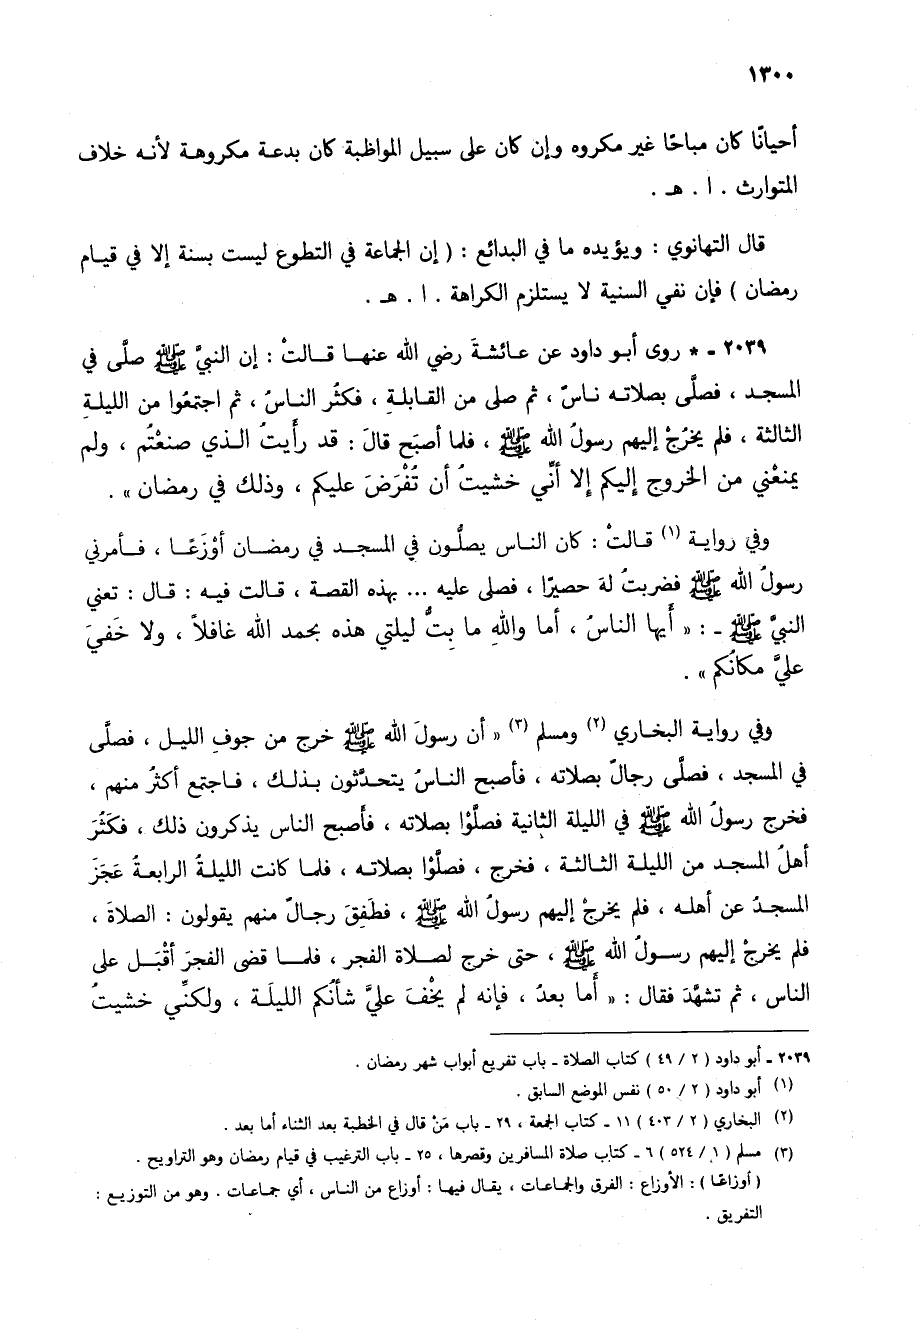 ١٣٠٠
أحيانًا كان مباحًا غير مكروه وإن كان على سبيل المواظبة كان بدعة مكروهة لأنه خلاف
المتوارث . ا . هـ .
قال التهانوي : ويؤيده ما في البدائع : ( إن الجماعة في التطوع ليست بسنة إلا في قيام
رمضان ) فإن نفي السنية لا يستلزم الكراهة . ا . هـ .
٢٠٣٩ - * روى أبو داود عن عائشةَ رضي الله عنها قالتْ : إن النبيَّ ﷺ صلَّى في
المسجد ، فصلَّى بصلاته ناسٌ ، ثم صلى من القابلةِ ، فكثُر الناسُ ، ثم اجتمعُوا من الليلةِ
الثالثة ، فلم يخرُجْ إليهم رسولُ الله ﷺ ، فلما أصبَح قالَ : قد رأيتُ الذي صنعْتُم ، ولم
يمنعْني من الخروج إليكم إلا أنِّي خشيتُ أن تُفْرَضَ عليكم ، وذلك في رمضان » .
وفي رواية (١) قالتْ : كان الناس يصلُّون في المسجد في رمضان أوْزَعًا ، فأمرني
رسولُ الله ﷺ فضربتُ لهَ حصيرًا ، فصلى عليه ... بهذه القصة ، قالت فيه : قال : تعني
النبيَّ ﷺ - : « أيها الناسُ ، أما واللهِ ما بِتُّ ليلتي هذه بحمد الله غافلاً ، ولا خَفيَ
عليَّ مكانُكم » .
وفي رواية البخاري (٢) ومسلم (٣) « أن رسولَ الله ﷺ خرج من جوفِ الليل ، فصلَّى
في المسجد ، فصلَّى رجالٌ بصلاته ، فأصبح الناسُ يتحدَّثون بذلك ، فاجتمع أكثرُ منهم ،
فخرج رسولُ الله ﷺ في الليلة الثانية فصلَّوْا بصلاته ، فأصبح الناس يذكرون ذلك ، فكَثُرَ
أهلُ المسجد من الليلة الثالثة ، فخرج ، فصلَّوْا بصلاته ، فلما كانت الليلةُ الرابعةُ عَجَزَ
المسجدُ عن أهله ، فلم يخرجْ إليهم رسولُ الله ﷺ ، فطَفِقَ رجالٌ منهم يقولون : الصلاةَ ،
فلم يخرجْ إليهم رسولُ الله ﷺ ، حتى خرج لصلاة الفجر ، فلما قضى الفجرَ أقْبَل على
الناس ، ثم تشهَّدَ فقال : « أما بعدُ ، فإنه لم يخْفَ عليَّ شأنُكم الليلَة ، ولكنِّي خشيتُ
٢٠٣٩ - أبو داود ( ٢ / ٤٩ ) كتاب الصلاة - باب تفريع أبواب شهر رمضان .
(١) أبو داود ( ٢ / ٥٠ ) نفس الموضع السابق .
(٢) البخاري ( ٢ / ٤٠٣ ) ١١ - كتاب الجمعة ، ٢٩ - باب مَنْ قال في الخطبة بعد الثناء أما بعد .
(٣) مسلم ( ١ / ٥٢٤ ) ٦ - كتاب صلاة المسافرين وقصرها ، ٢٥ - باب الترغيب في قيام رمضان وهو التراويح .
( أوزاعًا ) : الأوزاع : الفرق والجماعات ، يقال فيها : أوزاع من الناس ، أي جماعات . وهو من التوزيع :
التفريق .